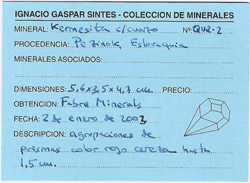 IGNACIO GASPAR SINTES - COLECCION DE MINERALES
MINERAL: Kermesita c/cuarzo Nº: QU2-2
PROCEDENCIA: Pezinok, Eslovaquia
MINERALES ASOCIADOS:
DIMENSIONES: 5,6x3,5x4,7 cm. PRECIO:
OBTENCION: Fabre Minerals
FECHA: 2 de enero de 2003
DESCRIPCION: Agrupaciones de
prismas color rojo cereza hasta
1,5cm.